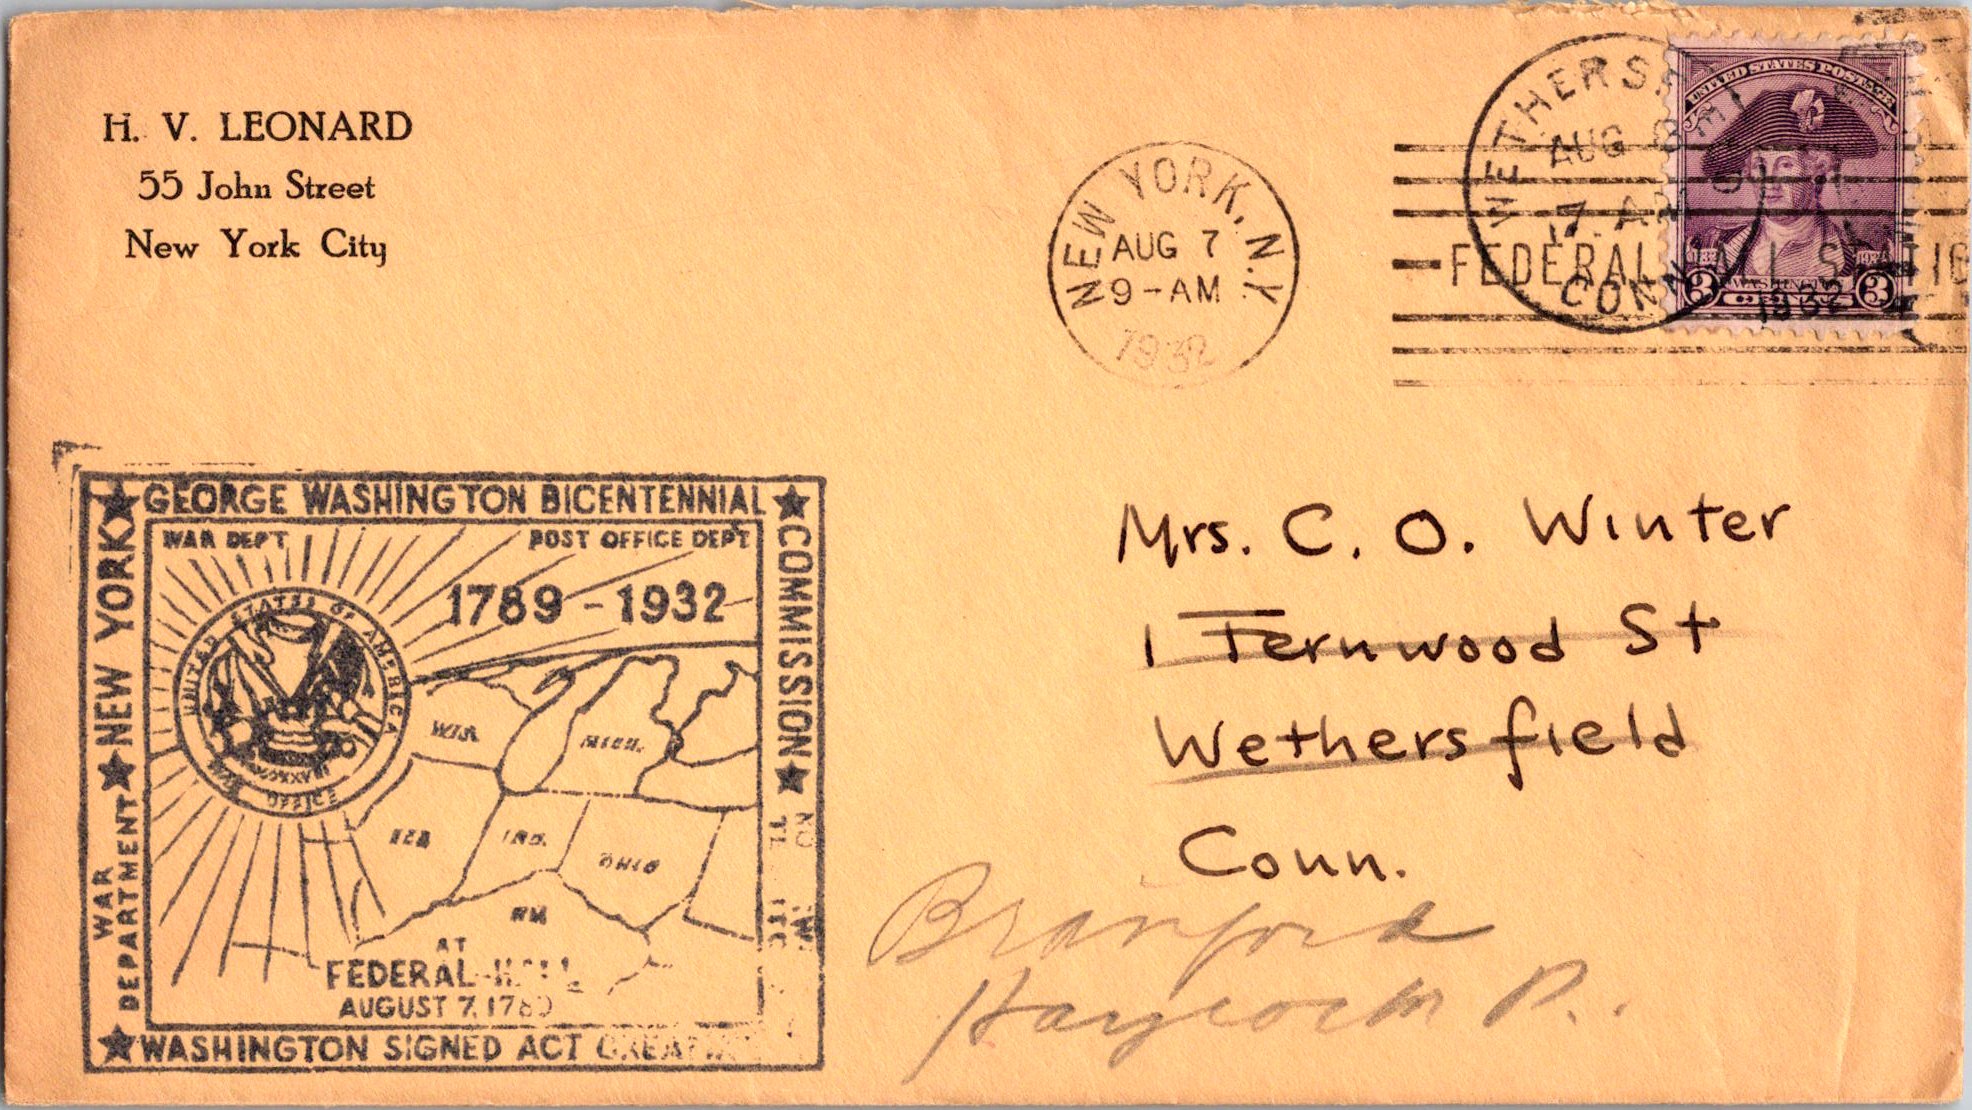 H. V. LEONARD
55 John Street
New York City
NEW YORK, N.Y.
AUG 7
9-AM
1932
WETHERS
AUG 8
7 A
CONN.
1932
FEDERAL
UNITED STATES POSTAGE
1732
WASHINGTON
3 CENTS 3
GEORGE WASHINGTON BICENTENNIAL
COMMISSION
NEW YORK
WAR DEPARTMENT
WAR DEP'T
POST OFFICE DEPT
1789 - 1932
UNITED STATES OF AMERICA
WAR OFFICE
WIS.
MICH.
IND.
OHIO
AT
FEDERAL
AUGUST 7, 178
WASHINGTON SIGNED ACT
Mrs. C. O. Winter
1 Fernwood St
Wethersfield
Conn.
Branford